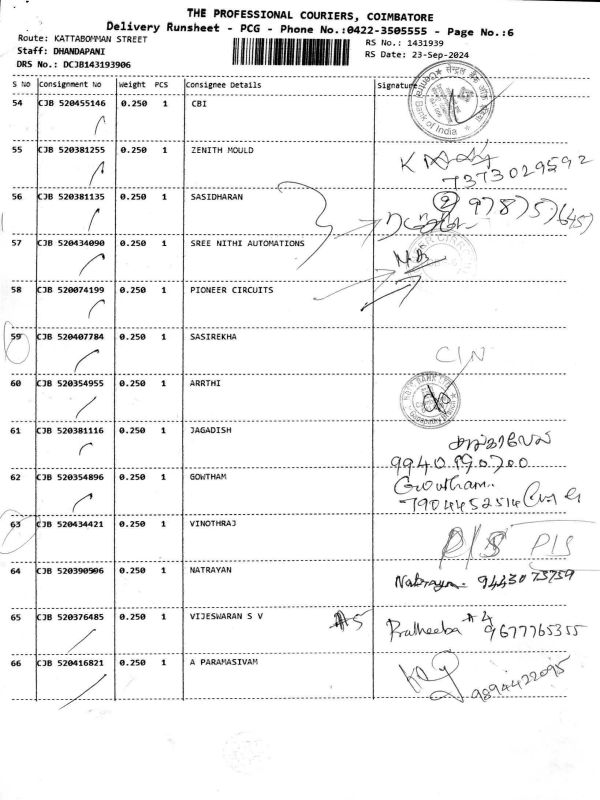 THE PROFESSIONAL COURIERS, COIMBATORE
Delivery Runsheet - PCG - Phone No.:0422-3505555 - Page No.:6
Route: KATTABOMMAN STREET
RS No.: 1431939
Staff: DHANDAPANI
RS Date: 23-Sep-2024
DRS No.: DCJB143193906
S No Consignment No Weight PCS Consignee Details Signature
54 CJB 520455146 0.250 1 CBI
Central Bank of India
55 CJB 520381255 0.250 1 ZENITH MOULD
7373029592
56 CJB 520381135 0.250 1 SASIDHARAN
57 CJB 520434090 0.250 1 SREE NITHI AUTOMATIONS
58 CJB 520074199 0.250 1 PIONEER CIRCUITS
59 CJB 520407784 0.250 1 SASIREKHA
CIN
60 CJB 520354955 0.250 1 ARRTHI
61 CJB 520381116 0.250 1 JAGADISH
62 CJB 520354896 0.250 1 GOWTHAM
Gowtham.
7904452514
63 CJB 520434421 0.250 1 VINOTHRAJ
P/S P/S
64 CJB 520390596 0.250 1 NATRAYAN
Natrayan. 9443073739
65 CJB 520376485 0.250 1 VIJESWARAN S V
Pratheeba #4
9677765355
66 CJB 520416821 0.250 1 A PARAMASIVAM
9894422095